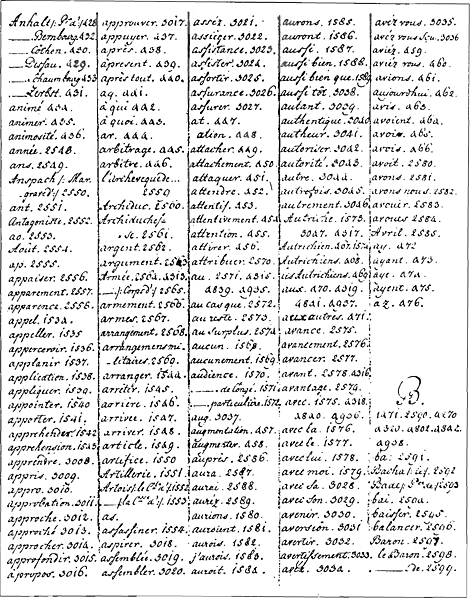 animé. 434.
animer. 435.
animosité. 436.
année. 2548.
ans. 2549.
Anspach
2550.
ant. 2551.
Antagoniste. 2552.
ao. 2553.
Août. 2554.
ap. 2555.
appaiser. 2556.
apparement. 2557.
apparence. 2558.
appel. 1534.
appeller. 1535
appercevoir. 1536.
applanir 1537.
application. 1538.
appliquer. 1539.
appointer. 1540
apporter. 1541.
apprehender. 1542
apprehension. 1543
apprendre. 3008.
appris. 3009.
appro. 3010.
approbation. 3011.
approche. 3012.
approché. 3013.
approcher. 3014.
approfondir. 3015.
à propos. 3016.
approuver. 3017.
appuyer. 437.
après. 438.
àpresent. 439.
après tout. 440.
aq. 441.
à qui 442.
à quoi. 443.
ar. 444.
arbitrage. 445.
arbitre. 446.
2559
Archiduc. 2560.
2561.
argent. 2562.
argument. 2563
2565.
armement. 2566.
armes. 2567.
arrangement. 2568.
2569.
arranger. 1544.
arrêter. 1545.
arrière. 1546.
arrive. 1547.
arriver. 1548.
article. 1549.
artifice. 1550
Artillerie. 1551.
as.
assassiner. 1554.
aspirer. 3018.
assemblée. 3019.
assembler. 3020.
assez. 3021.
assieger. 3022.
assistance. 3023.
assister. 3024.
assortir. 3025.
assurance. 3026.
assurer. 3027.
at. 447.
ation. 448.
attacher. 449.
attachement. 450
attaquer. 451.
attendre. 452.
attentif. 453.
attentivement. 454
attention. 455.
attirer. 456.
attribuer. 2570.
au. 2571. 4315.
4839. 4935.
au cas que. 2572.
au reste. 2573.
au surplus. 2574
aucun. 1568.
aucunement. 1569
audience. 1570.
de congé. 1571.
particuliere. 1572.
aug. 3037.
augmentation. 457.
augmenter. 458.
auprès. 2586.
aura. 2587.
aurai. 2588.
aurez. 2589.
aurions. 1580.
auroient. 1581.
aurois. 1582.
j'aurois. 1583.
auroit. 1584.
aurons. 1585.
auront. 1586.
aussi. 1587.
aussi bien. 1588.
aussi bien que. 1589
aussi tôt. 3038.
autant. 3039.
authentique. 3040
autheur. 3041.
autoriser. 3042.
autorité. 3043.
autre. 3044.
autrefois. 3045.
autrement. 3046.
Autriche. 1573.
3047. 4317.
aux. 470. 4319.
4841. 4937.
avance. 2575.
avancement. 2576.
avancer. 2577.
avant. 2578. 4316.
avantage. 2574.
avec. 1575. 4318.
4840. 4936.
avec la. 1576.
avec le. 1577.
avec lui. 1578.
avec moi. 1579.
avec sa. 3028.
avec son. 3029.
avenir. 3030.
aversion. 3031
avertir. 3032.
avertissement. 3033.
avez. 3034.
avez vous. 3035.
avez vous eu. 3036
aviez. 459.
aviez vous. 460.
avions. 461.
aujourdhui. 462.
avis. 463.
avoient. 464.
avois. 465.
avois. 466.
avoit. 2580.
avons. 2581.
avons nous. 2582.
avouer. 2583.
avoues. 2584.
Avril. 2585.
ay. 472
ayant. 473.
aye. 474.
ayent. 475.
az. 476.
B.
1471. 2590. 4270
4320. 4802. 4842.
4938.
ba. 2591.
bai. 2594.
baisser. 2595.
balancer. 2596.
Baron. 2597.
le Baron. 2598.
de. 2599.